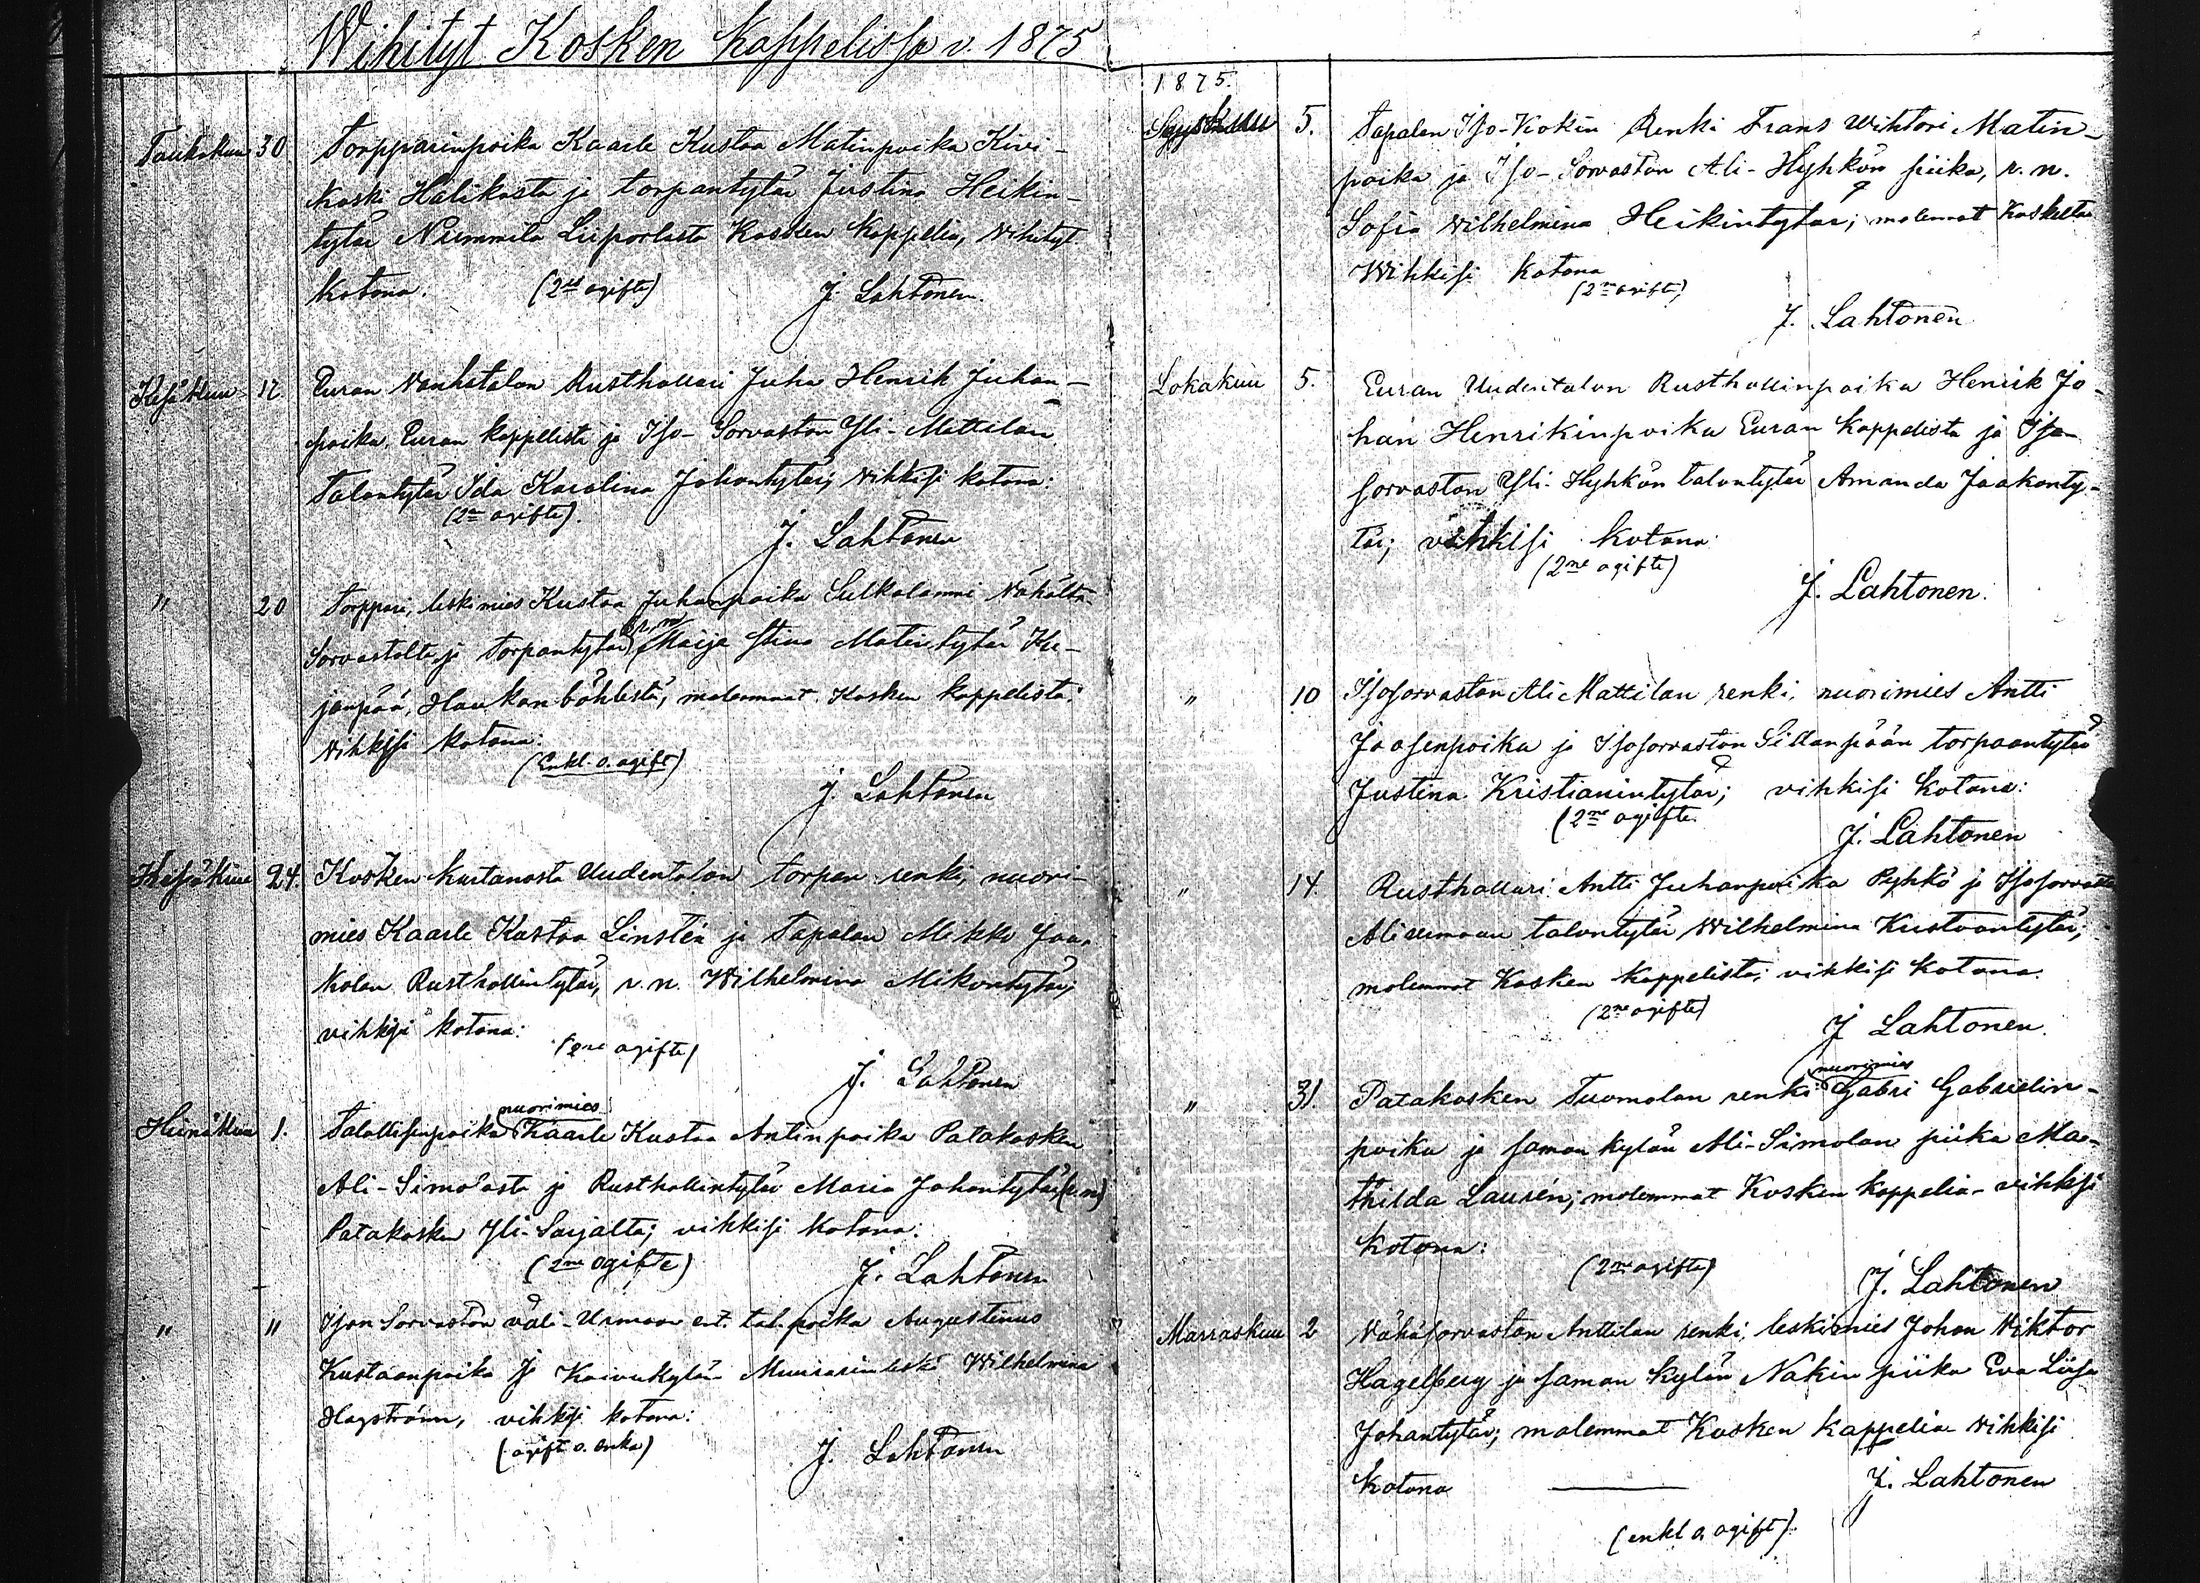 Wihityt Kosken kappelissa v. 1875
Toukokuu 30 Torpparinpoika Kaarle Kustaa Matinpoika Kivi-
koski Halikosta ja torpantytär Justina Heikin-
tytär Nummila Liiporlasta Kosken kappelia, vihityt
kotona. (2ne ogifte) J. Lahtonen.
Kesäkuu 12. Euran Vanhatalon Rusthollari Juha Henrik Juhan-
poika, Euran kappelista ja Iso-Sorvaston Yli-Mattilan
talontytär Ida Karolina Johantytär; vihkisi kotona:
(2ne ogifte).
J. Lahtonen
" 20 Torppari, leskimies Kustaa Juhanpoika Sulkalammi Vähältä-
Sorvastolta ja torpantytär, (r.n.) Maija Stina Matintytär Ku-
janpää, Haukan böhlestä, molemmat Kosken kappelista;
vihkisi kotona:
(Enkl. o. ogift)
J. Lahtonen
Kesäkuu 24. Kosken kartanosta Uudentalon torpan renki, nuori-
mies Kaarle Kustaa Linstén ja Tapalan Mikko Jaa-
kolan Rusthollintytär, r.n. Wilhelmina Mikontytär;
vihkisi kotona:
(2ne ogifte)
J. Lahtonen
Heinäkuu 1. Talollisenpoika nuorimies Kaarle Kustaa Antinpoika Patakosken
Ali-Simolasta ja Rusthollintytär Maria Johantytär (r.n)
Patakosken Yli-Sarjalta; vihkisi kotona:
(2ne ogifte) J. Lahtonen
" " Ison Sorvaston väli-Urmaan ent. tal. poika Augustinus
Kustaanpoika ja Koivukylän Muurarin leski Wilhelmina
Hagström, vihkisi kotona:
(ogift o. enka) J. Lahtonen
1875.
Syyskuu 5. Tapalan Iso-Kokin Renki Frans Wihtori Matin-
poika ja Iso-Sorvaston Ali-Hyhkön piika, r.n.
Sofia Wilhelmina Heikintytär; molemmat Koskelta
Wihkisi kotona
(2ne ogifte)
J. Lahtonen
Lokakuu 5. Euran Uudentalon Rusthollinpoika Henrik Jo-
han Henrikinpoika Euran kappelista ja Iso-
sorvaston Yli-Hyhkön talontytär Amanda Jaakonty-
tär; vihkisi kotona:
(2ne ogifte)
J. Lahtonen.
" 10 Isosorvaston Ali Mattilan renki, nuorimies Antti
Joosenpoika ja Isosorvaston Sillanpään torpantytär
Justina Kristianintytär; vihkisi kotona:
(2ne ogifte.
J. Lahtonen
" 14. Rusthollari Antti Juhanpoika Pyhkö ja Isosorvaston
Aliurmaan talontytär Wilhelmina Kustaantytär;
molemmat Kosken kappelista; vihkisi kotona.
(2ne ogifte)
J Lahtonen.
" 31. Patakosken Tuomolan renki nuorimies Gabri Gabrielin-
poika ja saman kylän Ali-Simolan piika Ma-
thilda Laurén; molemmat Kosken kappelia - vihkisi
kotona:
(2ne ogifte)
J. Lahtonen
Marraskuu 2 Vähäsorvaston Anttilan renki, leskimies Johan Wiktor
Hagelberg ja saman kylän Nakin piika Eva Liisa
Johantytär; molemmat Kosken kappelia vihkisi
kotona J. Lahtonen
(enkl o. ogift).